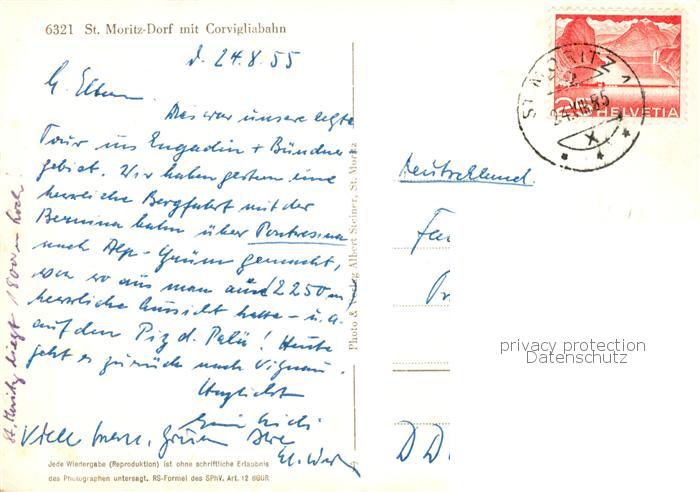 6321 St. Moritz-Dorf mit Corvigliabahn
d. 24.8.55
Das war unsere letzte
Tour ins Engadin + Bündner-
gebiet. Wir haben gestern eine
herrliche Bergfahrt mit der
Bernina bahn über Pontresina
nach Alp-Grüm gemacht,
von wo aus man aus 2250 m
herrliche Aussicht hatte - u.a.
auf den Piz d. Palü! Heute
geht es zurück nach Vignau.
Herzlichst
Viele Grüsse Ihre
St. Moritz liegt 1800 m hoch!
Jede Wiedergabe (Reproduktion) ist ohne schriftliche Erlaubnis
des Photographen untersagt. RS-Formel des SPhV. Art. 12 BGUR
Photo & Verlag Albert Steiner, St. Moritz
ST. MORITZ 1
24.VIII.55
X
HELVETIA
Deutschland.
privacy protection
Datenschutz
D